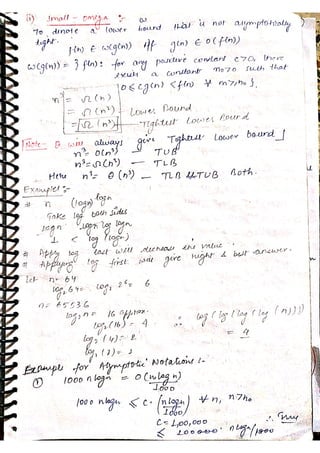 ii) Small-omega :- ω
To denote a lower bound that is not asymptotically
tight.
f(n) ∈ ω(g(n)) iff g(n) ∈ o(f(n))
ω(g(n)) = { f(n): for any positive constant c>0, there
exists a constant n₀>0 such that
0 ≤ cg(n) < f(n) ∀ n>n₀ }
n³ = Ω(n)
= Ω(n²) - Lower Bound
= Ω(n³) - Tightest Lower Bound
Note:- θ will always give Tightest lower bound
n³ = O(n³) - TUB
n³ = Ω(n³) - TLB
Here n³ = θ(n³) - TLB & TUB Both.
Example:-
n (logn)^logn
Take log both sides
logn logn log logn
1 < log(logn)
Apply log last will decrease the value.
Applying log first will give right & best answer.
Let n = 64
log₂64 = log₂2⁶ = 6
n = 65536
log₂n = 16 approx.
log₂(16) = 4
log₂(4) = 2
log₂(2) = 1
∴ log(log(log(log(n))))
Example for Asymptotic Notations :-
① 1000 nlogn = O(nlogn)/1000
1000 nlogn ≤ c. (nlogn/1000) ∀ n, n>n₀
C = 1,00,000
≤ nlogn/1000